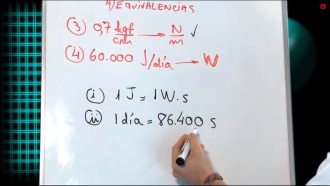 A) EQUIVALENCIAS
③ 0,7 kgf/cm → N/m ✓
④ 60.000 J/día → W
(i) 1 J = 1 W.s
(ii) 1 día = 86.400 s